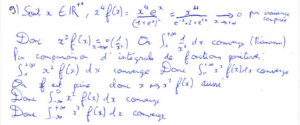 9) Soit x ∈ ℝ⁺*, x⁴f(x) = x⁴eˣ/(1+eˣ)² = x⁴/(e⁻ˣ+2+eˣ) → 0 par croissance comparée
Donc x²f(x) = o(1/x²) Or ∫₁^{+∞} 1/x² dx converge (Riemann)
Par comparaison d'intégrale de fonctions positives,
∫₁^{+∞} x² f(x) dx converge Donc ∫₀^{+∞} x² f(x) dx converge
Or f est paire donc x ↦ x² f(x) aussi
Donc ∫_{-∞}^0 x² f(x) dx converge
Donc ∫_{-∞}^{+∞} x² f(x) dx converge